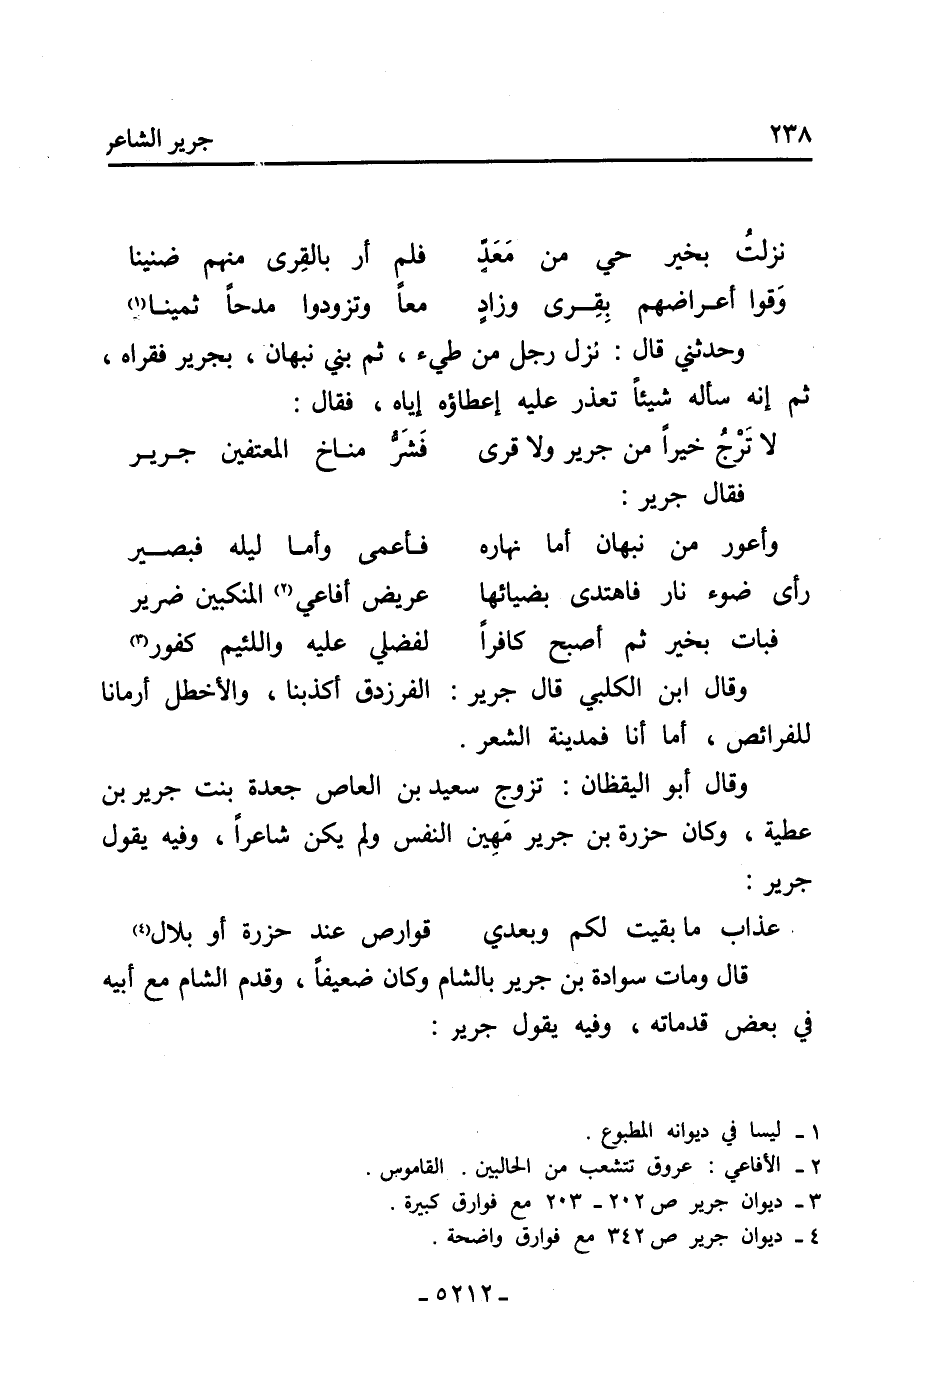 ٢٣٨ جرير الشاعر
نزلتُ بخير حي من مَعَدٍّ فلم أر بالقِرى منهم ضنينا
وَقوا أعـراضهم بِقِـرى وزادٍ معاً وتزودوا مدحاً ثمينـا(١)
وحدثني قال : نزل رجل من طيء ، ثم بني نبهان ، بجرير فقراه ،
ثم إنه سأله شيئاً تعذر عليه إعطاؤه إياه ، فقال :
لا تَرْجُ خيراً من جرير ولا قرى فَشَرُّ منـاخ المعتفين جـريـر
فقال جرير :
وأعور من نبهان أما نهاره فـأعمى وأمـا ليله فبصـير
رأى ضوء نار فاهتدى بضيائها عريض أفاعي(٢) المنكبين ضرير
فبات بخير ثم أصبح كافراً لفضلي عليه واللئيم كفور(٣)
وقال ابن الكلبي قال جرير : الفرزدق أكذبنا ، والأخطل أرمانا
للفرائص ، أما أنا فمدينة الشعر .
وقال أبو اليقظان : تزوج سعيد بن العاص جعدة بنت جرير بن
عطية ، وكان حزرة بن جرير مَهِين النفس ولم يكن شاعراً ، وفيه يقول
جرير :
عذاب ما بقيت لكم وبعدي قوارص عند حزرة أو بلال(٤)
قال ومات سوادة بن جرير بالشام وكان ضعيفاً ، وقدم الشام مع أبيه
في بعض قدماته ، وفيه يقول جرير :
١ ـ ليسا في ديوانه المطبوع .
٢ ـ الأفاعي : عروق تتشعب من الحالبين . القاموس .
٣ ـ ديوان جرير ص ٢٠٢ ـ ٢٠٣ مع فوارق كبيرة .
٤ ـ ديوان جرير ص ٣٤٢ مع فوارق واضحة .
ـ ٥٢١٢ ـ